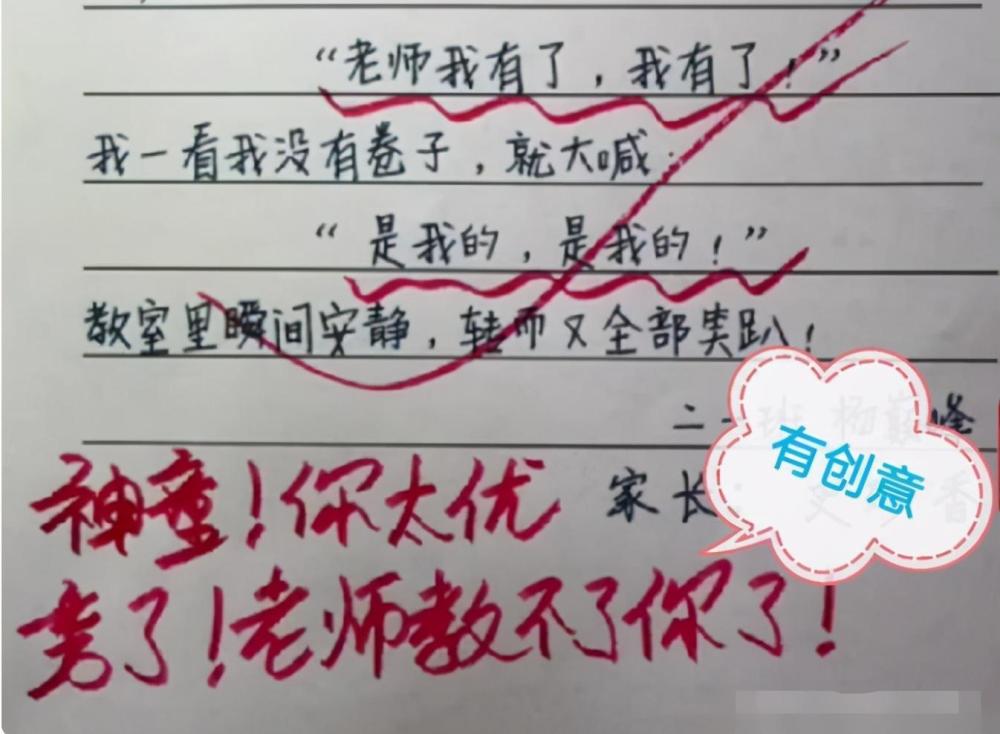 “老师我有了，我有了！”
我一看我没有卷子，就大喊：
“是我的，是我的！”
教室里瞬间安静，转而又全部笑趴！
二一班 杨巅峰
家长： 香
有创意
神童！你太优
秀了！老师教不了你了！